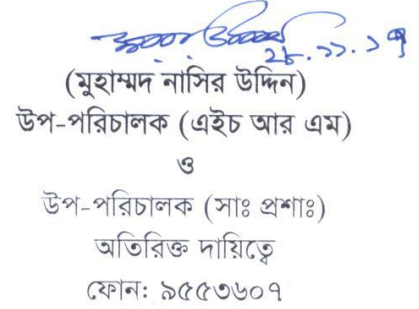 ২৮.১১.১৭
(মুহাম্মদ নাসির উদ্দিন)
উপ-পরিচালক (এইচ আর এম)
ও
উপ-পরিচালক (সাঃ প্রশাঃ)
অতিরিক্ত দায়িত্বে
ফোন: ৯৫৫৩৬০৭